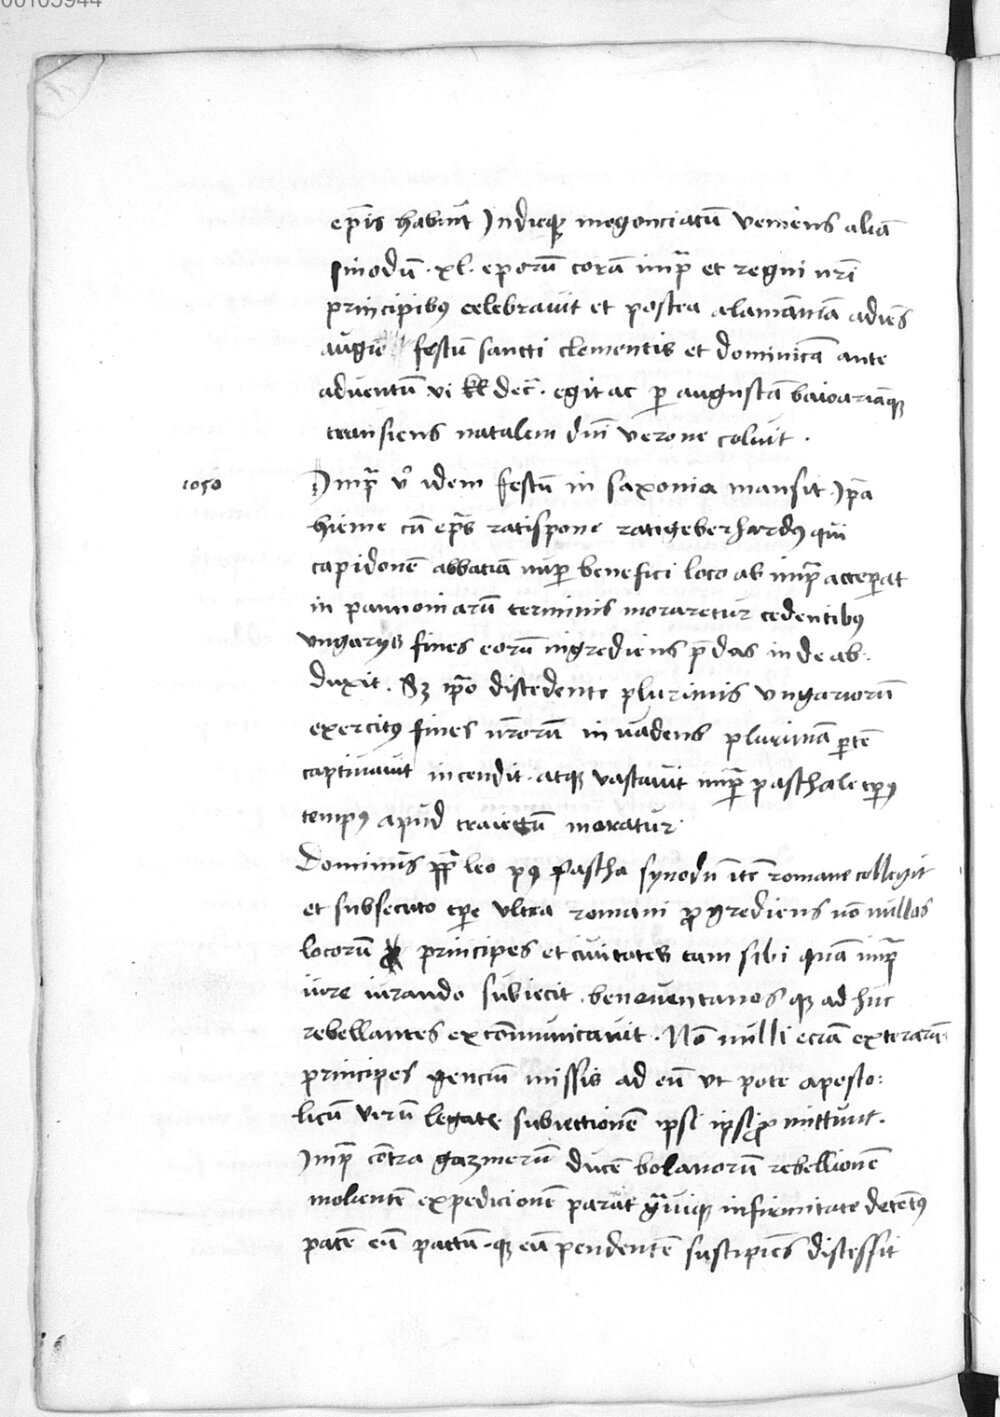 00105944
ep̄is habuit Indieq; megonciacū veniens aliā
sinodū · xl · eporū corā imp̄r et regni nr̄i
principibꝰ celebravit et postea alamāniā adiēs
augie festū sancti clementis et dominicā ante
adventū vi kl dec̄ · egit ac ꝑ augustā baioariāq;
transiens natalem dn̄i verone coluit ·
1050
Imp̄r vº idem festū in saxonia mansit · Ip̄a
hieme cū ep̄us ratispone ratigeberhardꝰ qui
capidonē abbatiā nuꝑ benefici loco ab imp̄r acceperat
in pannoniarū terminis moraretur cedentibꝰ
vngarijs fines eorū ingrediens p̄das inde ab-
duxit · Sꝫ ip̄o discedente plurimis vngariorū
exercitꝰ fines nr̄orū invadens plurimā ꝑtē
captivavit incendit · atq; vastavit imp̄r paschale tp̄ꝰ
tempꝰ apud traiectū moratur
Dominus pp̄a leo pꝰ pascha synodū itē romane collegit
et subsecuto tp̄e ultra romani ꝓgrediens nō nullos
locorū principes et civitates tam sibi quā imp̄r
iure iurando subiecit · beneventanos q; ad huc
rebellantes excōmunicavit · Nō nulli etiā exterarū
principes gencium missis ad eū ut pote aposto-
licū virū legatis subiectionē ipsi ipsi ꝓmittunt ·
Imp̄r cōtra gazmerū ducē bolanorū rebellionē
molientē expedicionē parat gͣuiq; infirmitate detētꝰ
patē eū pactū · q; eū pendentē suscipiēs discessit